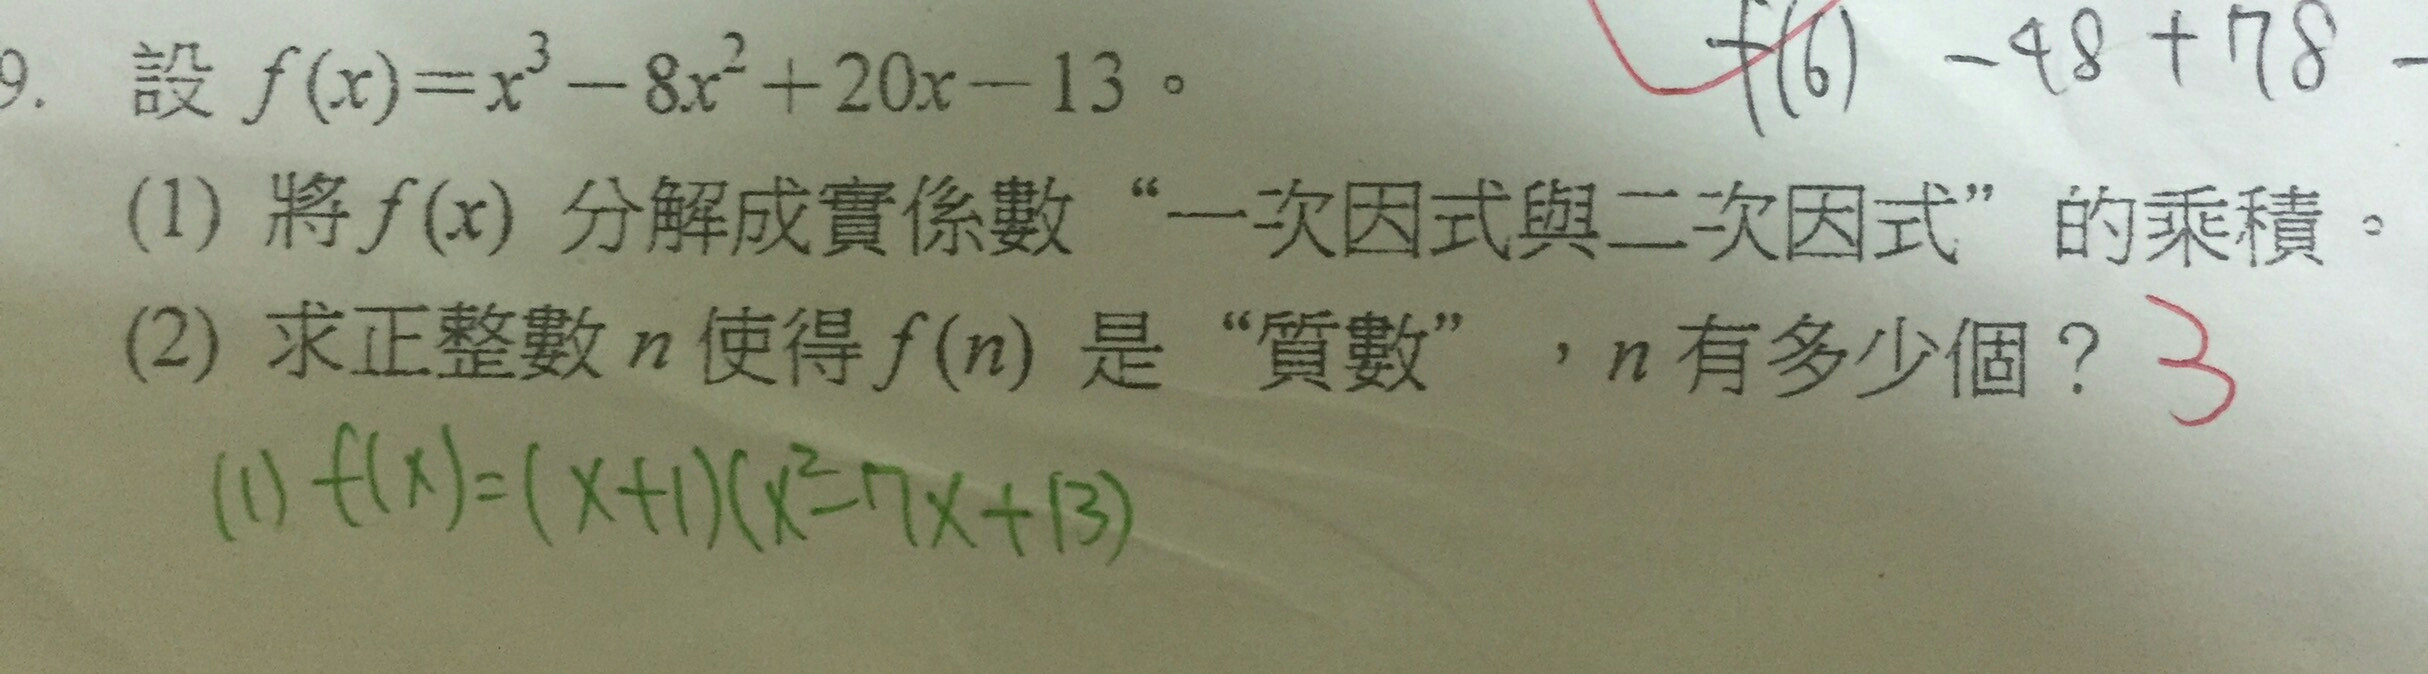 f(6) -48+78-
9. 設 f(x)=x³-8x²+20x-13。
(1) 將f(x) 分解成實係數 “一次因式與二次因式” 的乘積。
(2) 求正整數 n 使得 f(n) 是 “質數”,n 有多少個? 3
(1) f(x)=(x+1)(x²-7x+13)